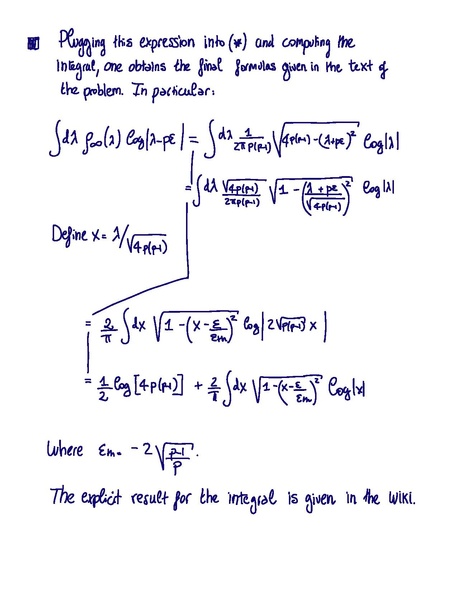 Plugging this expression into (*) and computing the
integral, one obtains the final formulas given in the text of
the problem. In particular:
∫dλ ρ∞(λ) log|λ-pε| = ∫dλ 1/(2πp(p-1)) √(4p(p-1)-(λ+pε)²) log|λ|
= ∫dλ √(4p(p-1))/(2πp(p-1)) √(1-((λ+pε)/√(4p(p-1)))²) log|λ|
Define x = λ/√(4p(p-1))
= 2/π ∫dx √(1-(x-ε/εm)²) log|2√(p(p-1)) x|
= 1/2 log[4p(p-1)] + 2/π ∫dx √(1-(x-ε/εm)²) log|x|
Where εm = -2√((p-1)/p).
The explicit result for the integral is given in the Wiki.